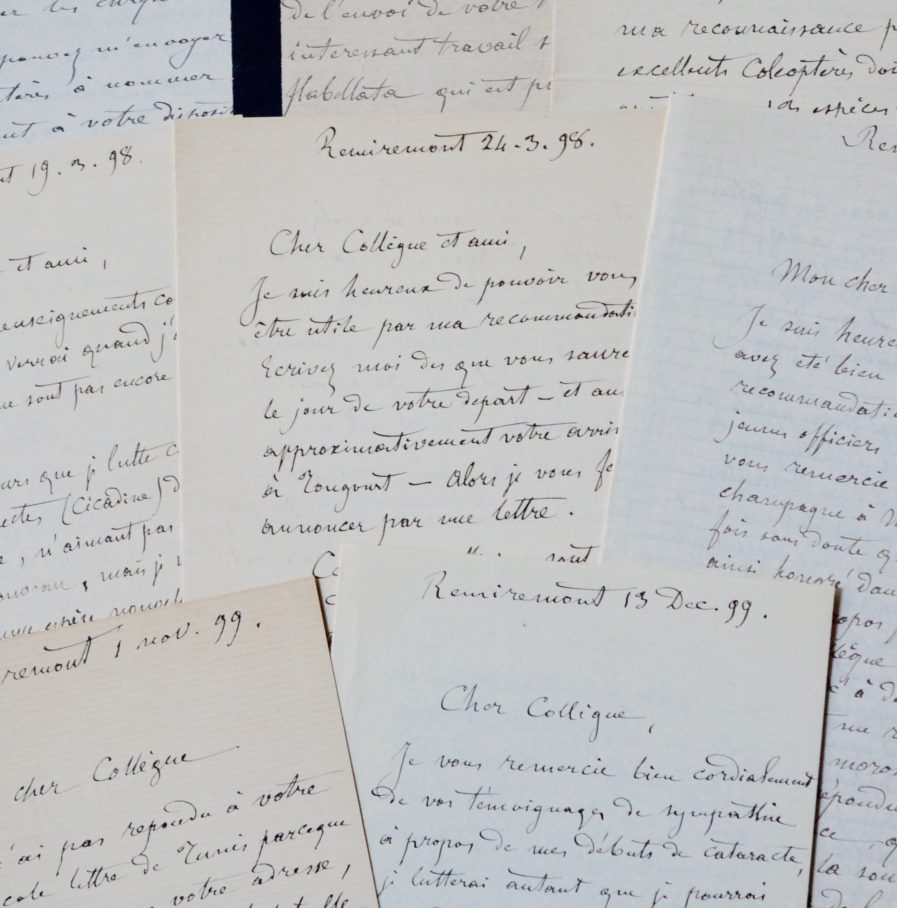 pouvez m'envoyer
à nommer
à votre
de l'envoi de votre
interessant travail s
flabellata qui est p
ma reconnaissance p
excellents Coleoptères do
espèces
19. 3. 98.
et ami,
enseignements co
verrai quand j'
ne sont pas encore
que je lutte c
(Cicadine) d
, n'aimant pas
, mais j
Remiremont 24-3.98.
Cher Collègue et ami,
Je suis heureux de pouvoir vous
être utile par ma recommandati
Ecrivez moi des que vous saure
le jour de votre depart - et au
approximativement votre arri
à Tougourt - Alors je vous f
annoncer par une lettre.
sont
Rem
Mon cher
Je suis heure
avez été bien
recommandati
jeunes officiers
vous remercie
champagne à
fois sans doute q
ainsi honoré dan
opos
lègue
à d
me r
moros
épondu
ce, q
la sou
remont 1 nov. 99.
cher Collègue
'ai pas repondu à votre
lettre de Tunis parceque
votre adresse,
Remiremont 13 Dec. 99.
Cher Collègue,
Je vous remercie bien cordialement
de vos témoignages de sympathie
à propos de mes débuts de cataracte,
je lutterai autant que je pourrai